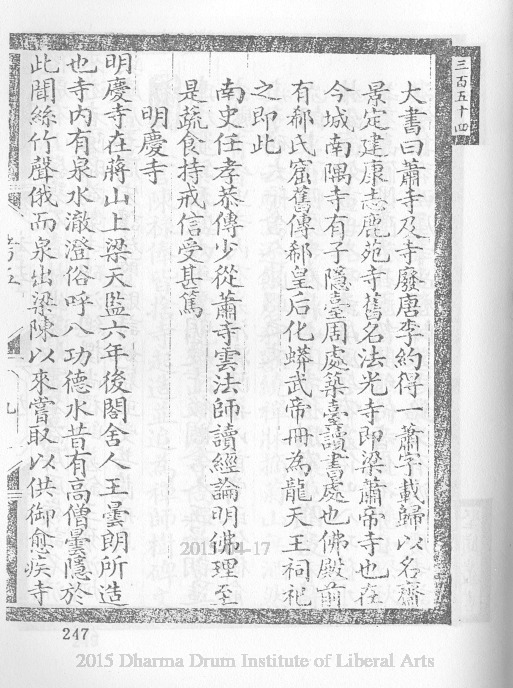 三百五十四
大書曰蕭寺及寺廢唐李約得一蕭字載歸以名齋
景定建康志鹿苑寺舊名法光寺即梁蕭帝寺也在
今城南隅寺有子隱臺周處築臺讀書處也佛殿前
有郗氏窟舊傳郗皇后化蟒武帝冊為龍天王祠祀
之即此
南史任孝恭傳少從蕭寺雲法師讀經論明佛理至
是蔬食持戒信受甚篤
明慶寺
明慶寺在蔣山上梁天監六年後閣舍人王曇朗所造
也寺內有泉水澈澄俗呼八功德水昔有高僧曇隱於
此聞絲竹聲俄而泉出梁陳以來嘗取以供御愈疾寺
247
2015-04-17
2015 Dharma Drum Institute of Liberal Arts